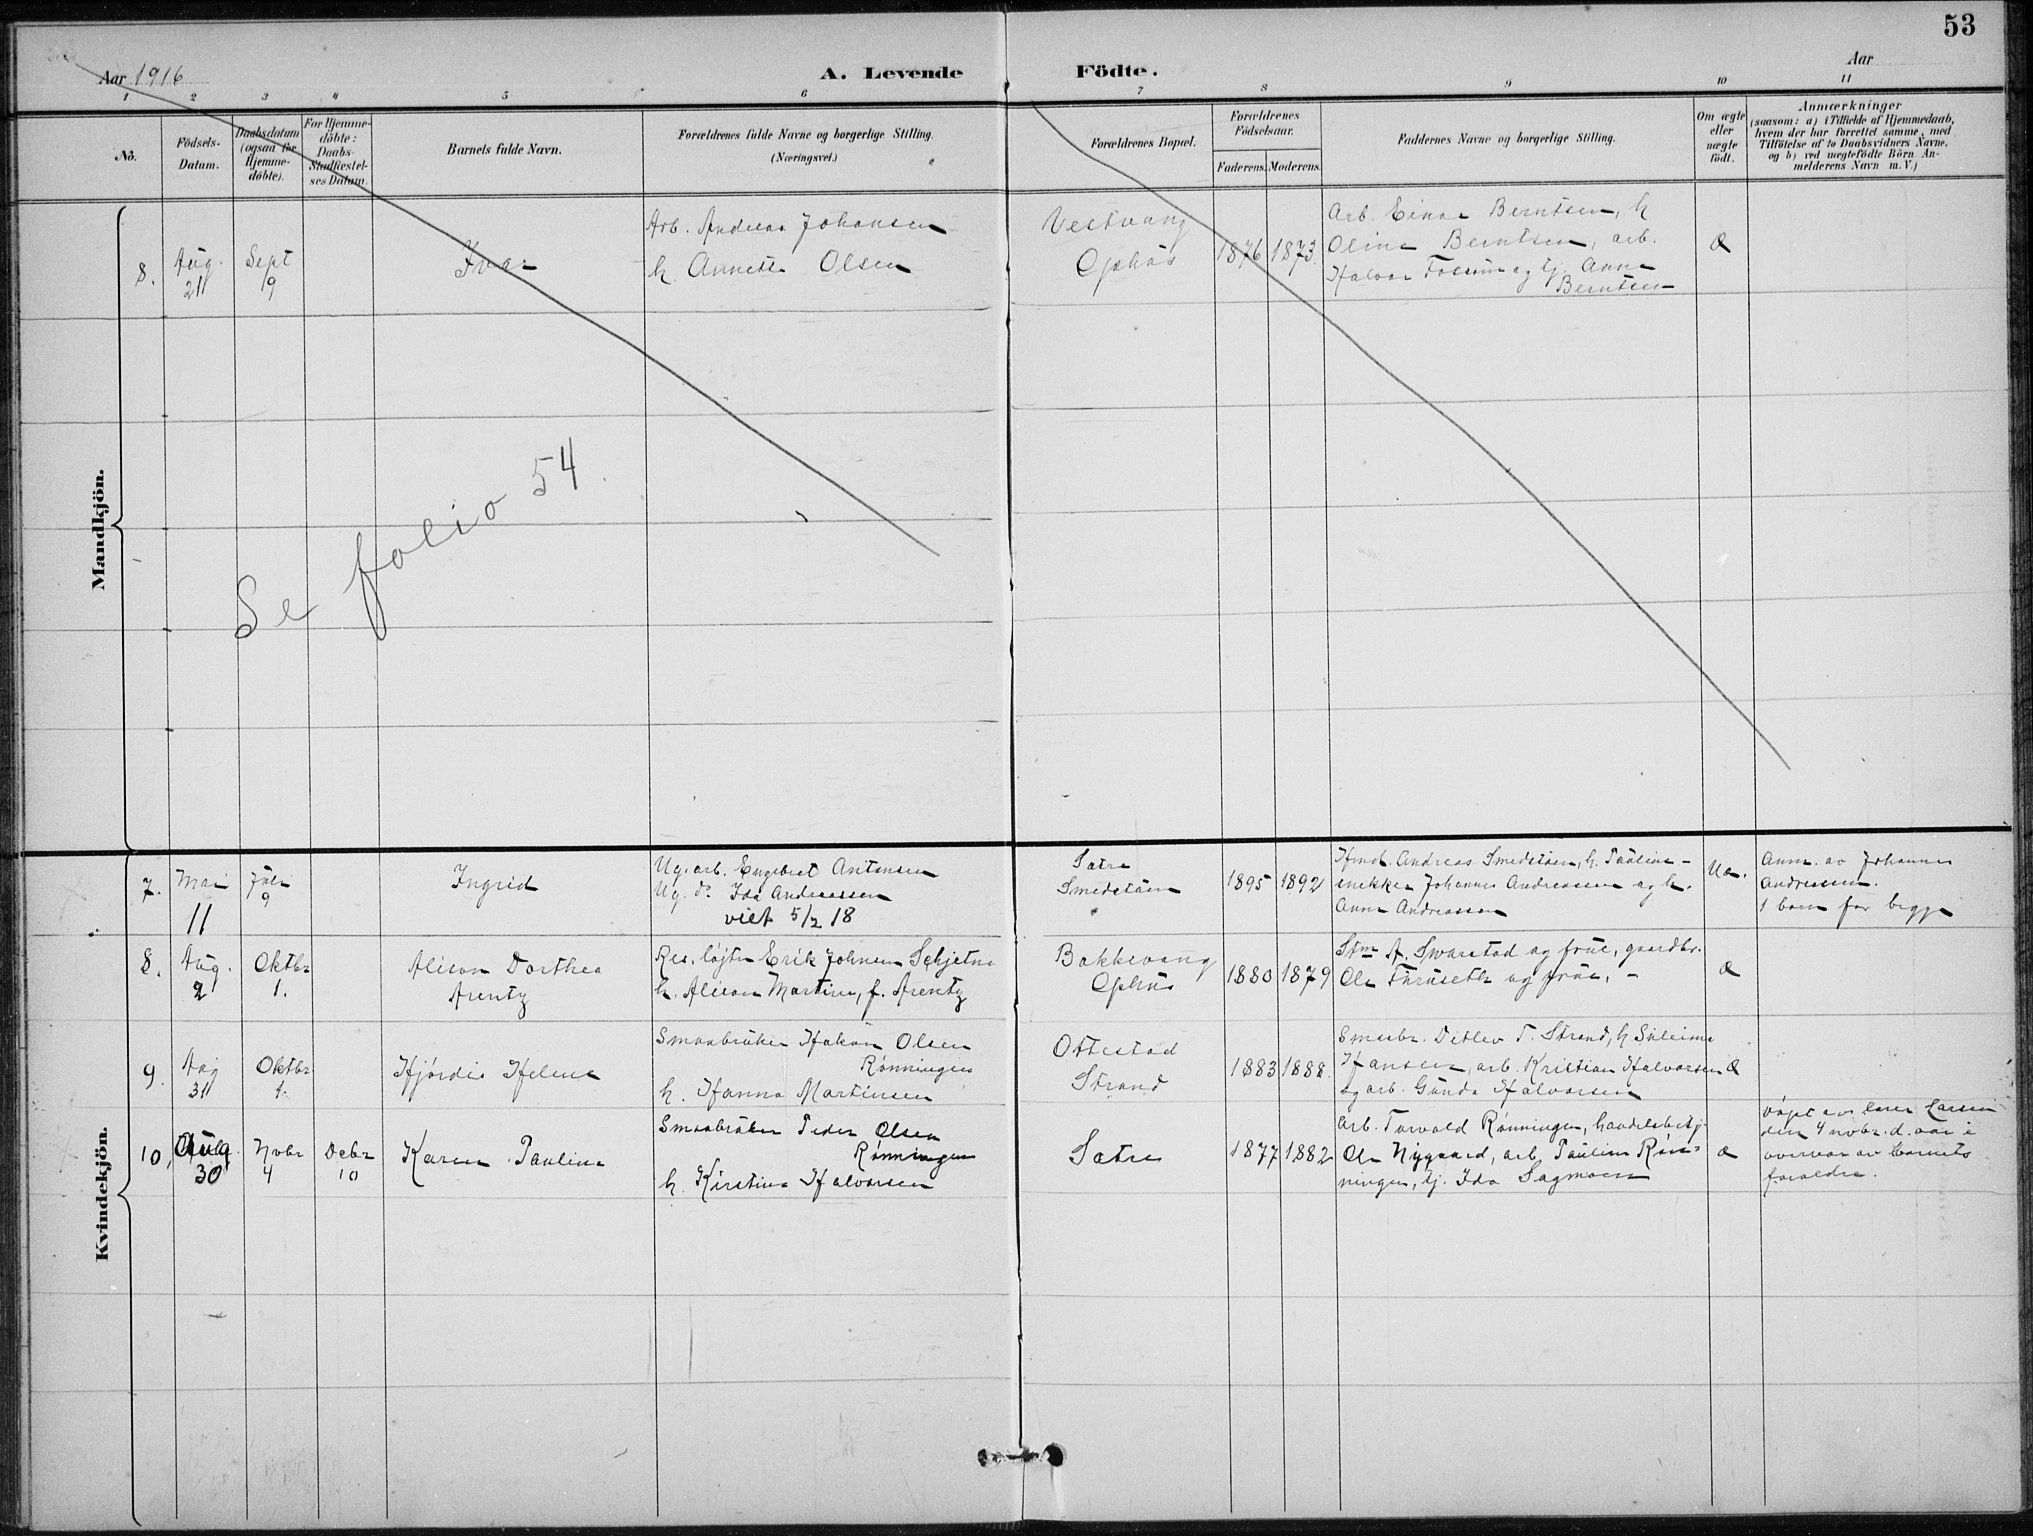 53
Aar 1916
A. Levende Födte.
Aar
1 2 3 4 5 6 7 8 9 10 11
No.
Födsels-Datum.
Daabsdatum (ogsaa for Hjemme-döbte).
For Hjemme-döbte: Daabs-Stadfæstel-ses Datum.
Barnets fulde Navn.
Forældrenes fulde Navne og borgerlige Stilling.
(Næringsvei.)
Forældrenes Bopæl.
Forældrenes Födselsaar.
Faderens. Moderens.
Faddernes Navne og borgerlige Stilling.
Om ægte eller uægte födt.
Anmærkninger
(saasom: a) i Tilfælde af Hjemmedaab,
hvem der har forrettet samme, med
Tilföielse af to Daabsvidners Navne.
og b) ved uægtefödte Börn An-
melderens Navn m. V.)
Mandkjön.
8. Aug. 21 Sept 9 Ivar
Arb. Andreas Johansen
h. Annette Olsen
Vestvang
Ophus
1876 1873
Arb. Einar Berntsen, h
Oline Berntsen, arb.
Halvor Fossum og tj. Anna
Berntsen
Æ
Se folio 54.
Kvindekjön.
7. Mai 11 Juli 9 Ingrid
Ug. arb. Engebret Antonsen
Ug. do Ida Andreassen
viet 5/2 18
Sætre
Smedstuen
1895 1892
Hmd. Andreas Smedstuen, h. Pauline –
snekker Johannes Andreassen og h.
Anna Andreassen
Uæ.
Anm. av Johannes
Andreassen.
1 barn for begge
8. Aug. 2 Oktbr 1. Alison Dorthea
Arentz
Res. løjtn Erik Johnsen Schjetne
h. Alison Martine, f. Arentz
Bakkevang
Ophus
1880 1879
Stm A. Svarstad og frue, gaardbr.
Ole Furuseth og frue. –
Æ
9. Aug 31 Oktbr 1. Hjørdis Helene
Smaabruker Hakon Olsen
Rønningen
h. Hanna Martinsen
Ottestad
Strand
1883 1888.
Smaabr. Ditlev T. Strand, h
Hansen, arb. Kristian Halvorsen
og arb. Gunda Halvorsen
Æ
10. Aug. 30 Novbr 4 Debr 10 Karen Pauline
Smaabruker Peder Olsen
Rønningen
h. Kirstine Halvorsen
Sætre
1877 1882
Arb. Torvald Rønningen, handelsbetj.
Ole Nygaard, arb. Pauline Røn-
ningen, tj. Ida Sagmoen
Æ
Døpt av lærer Larsen
den 4 novbr. d. aar i
overvær av barnets
forældre.